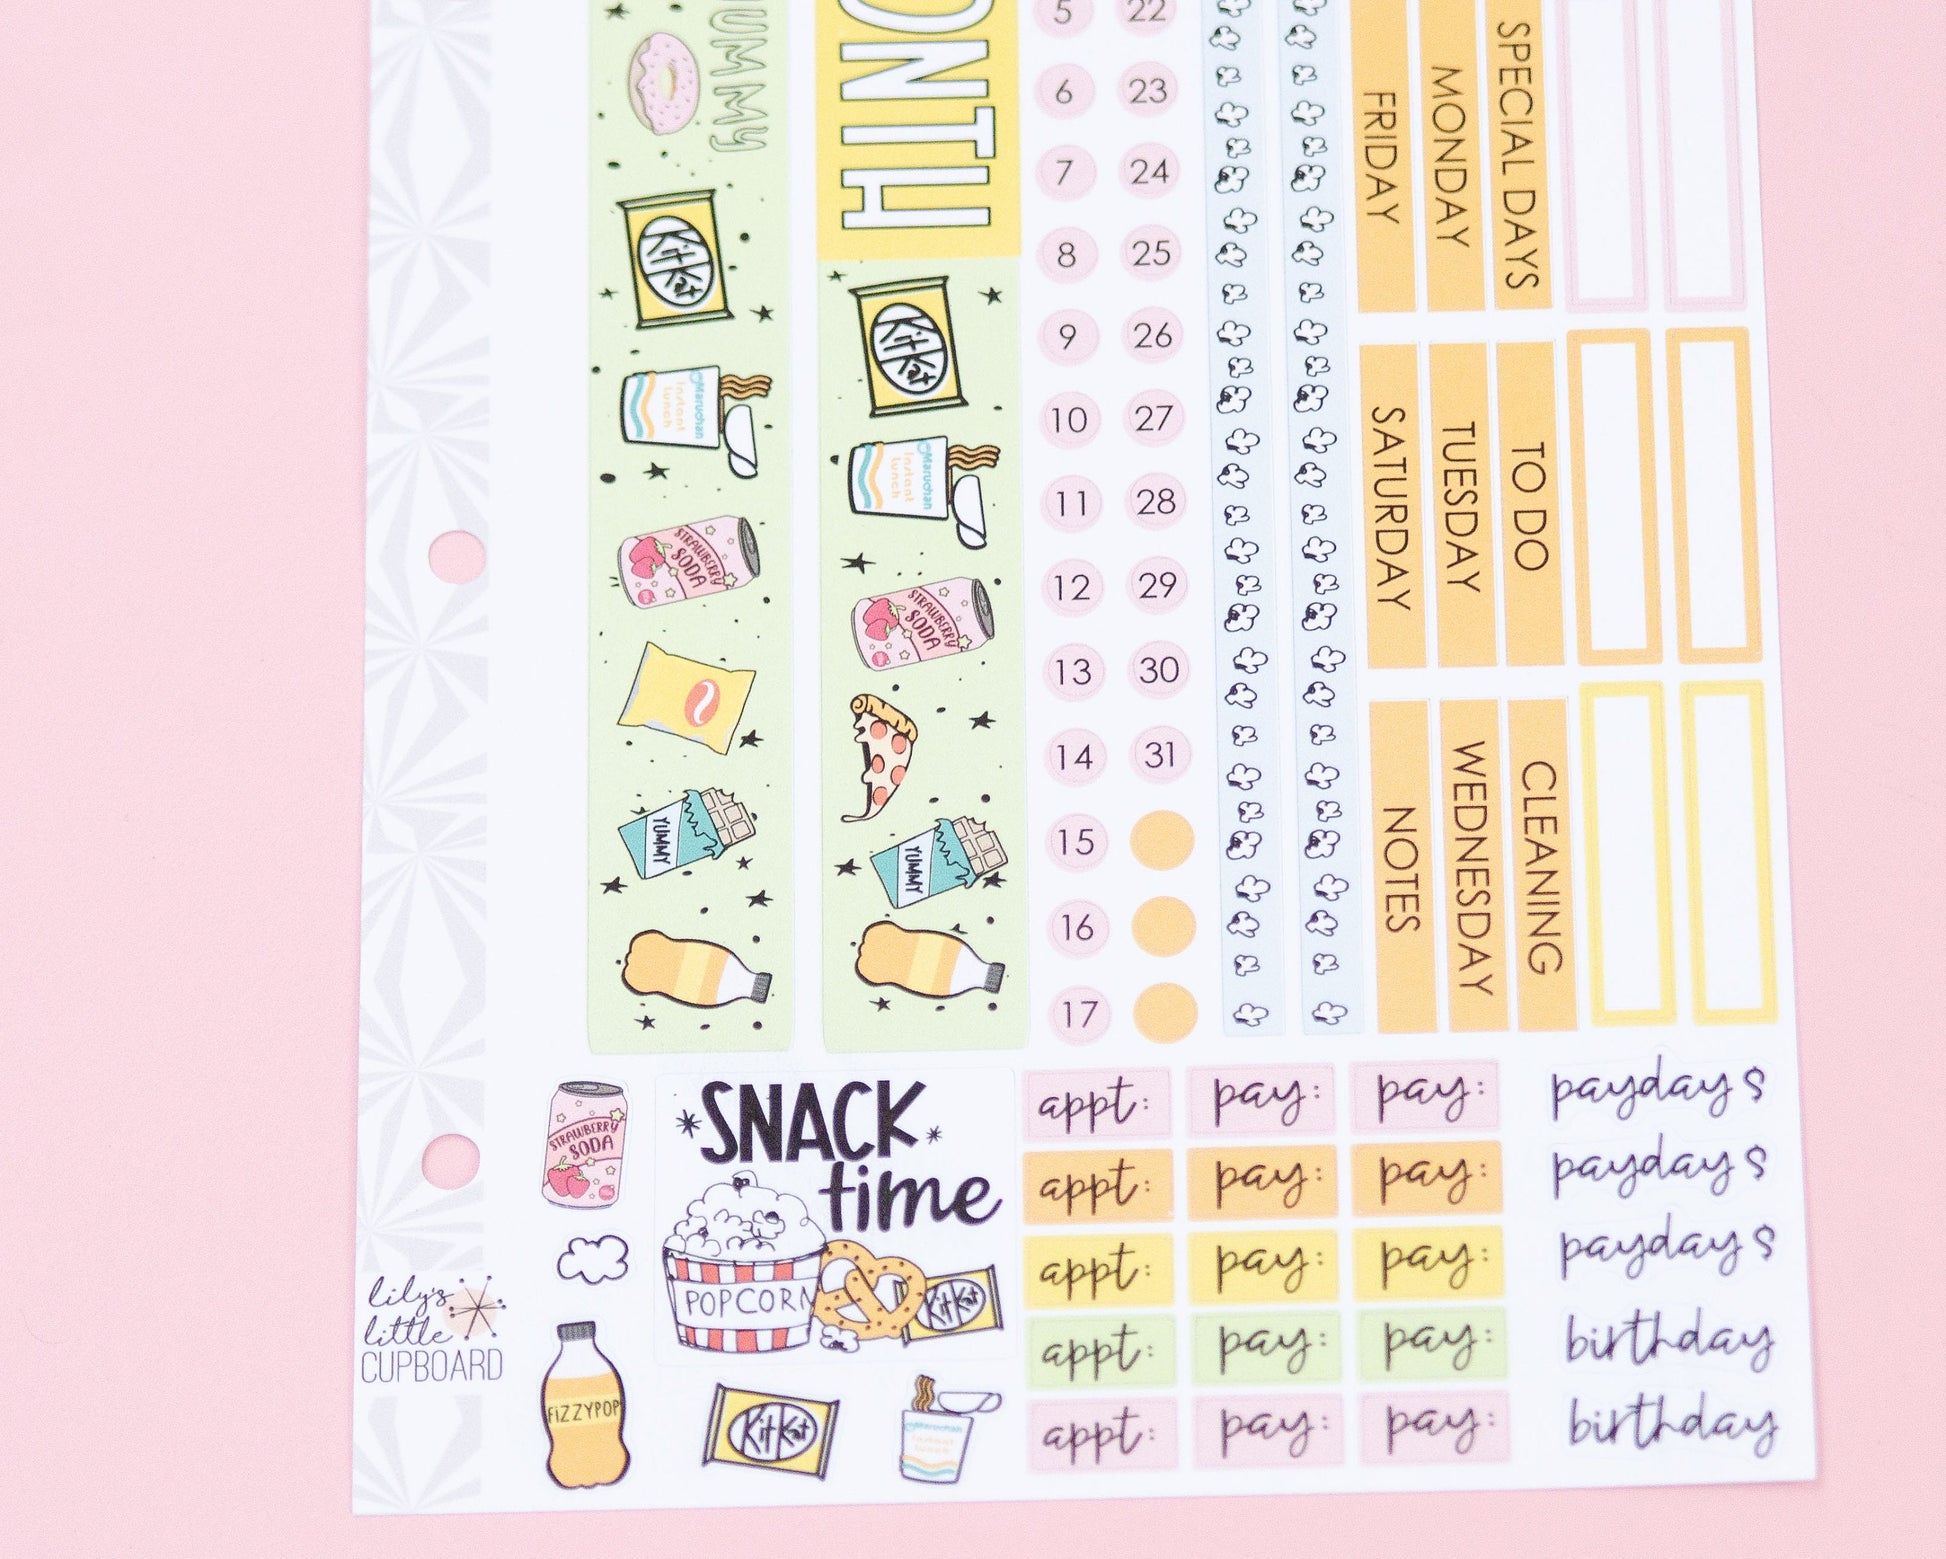 YUMMY
KitKat
Maruchan
Instant
Lunch
STRAWBERRY
SODA
YUMMY
ONTH
KitKat
Maruchan
Instant
Lunch
STRAWBERRY
SODA
YUMMY
5 22
6 23
7 24
8 25
9 26
10 27
11 28
12 29
13 30
14 31
15
16
17
SPECIAL DAYS
MONDAY
FRIDAY
TO DO
TUESDAY
SATURDAY
CLEANING
WEDNESDAY
NOTES
STRAWBERRY
SODA
SNACK
time
POPCORN
KitKat
FIZZYPOP
KitKat
Maruchan
Instant
Lunch
appt: pay: pay:
appt: pay: pay:
appt: pay: pay:
appt: pay: pay:
appt: pay: pay:
payday $
payday $
payday $
birthday
birthday
lily's
little
CUPBOARD